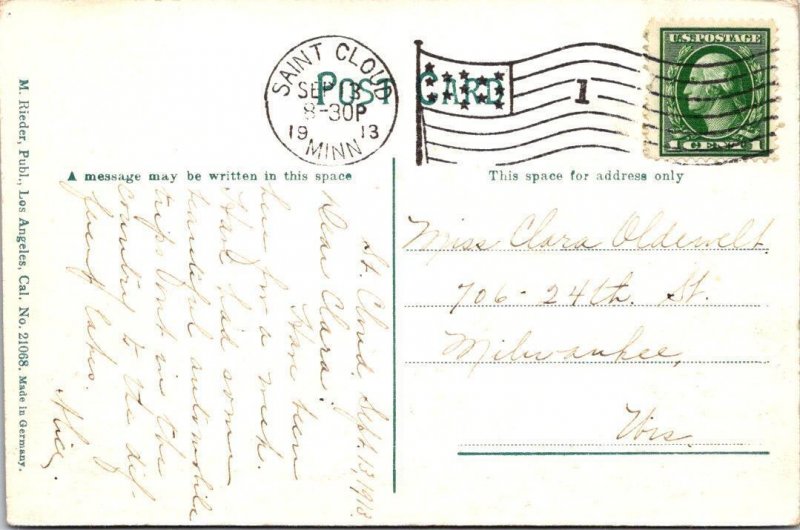 SAINT CLOUD
SEP 13
8-30P
19 13
MINN
1
U.S. POSTAGE
1 CENT 1
POST CARD
A message may be written in this space
This space for address only
M. Rieder, Publ., Los Angeles, Cal. No. 21068. Made in Germany.
St. Cloud. Sept. 13, 1913.
Dear Clara:
Have been
here for a week.
Have had some
beautiful automobile
trips out in the
country to the dif-
ferent lakes.
Miss Clara Oldewelt.
706 - 24th. St.
Milwaukee,
Wis.